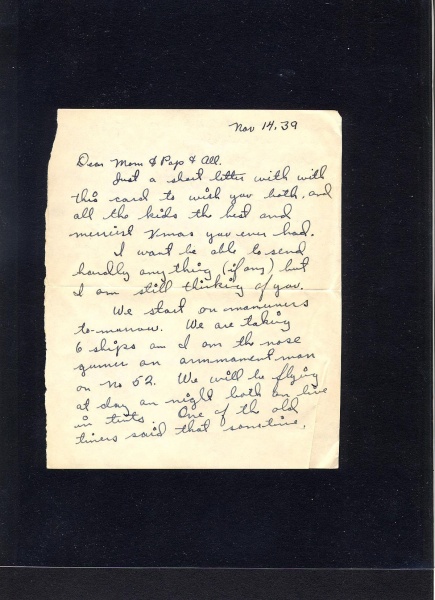 Nov 14, 39
Dear Mom & Pap & All.
Just a short letter with with
this card to wish you both, and
all the kids the best and
merriest Xmas you ever had.
I wont be able to send
handly any thing (if any) but
I am still thinking of you.
We start on manuvers
to-morrow. We are taking
6 ships an I am the nose
gunner an armmament man
on no 52. We will be flying
at day an night both an live
in tents. One of the old
timers said that sometime,